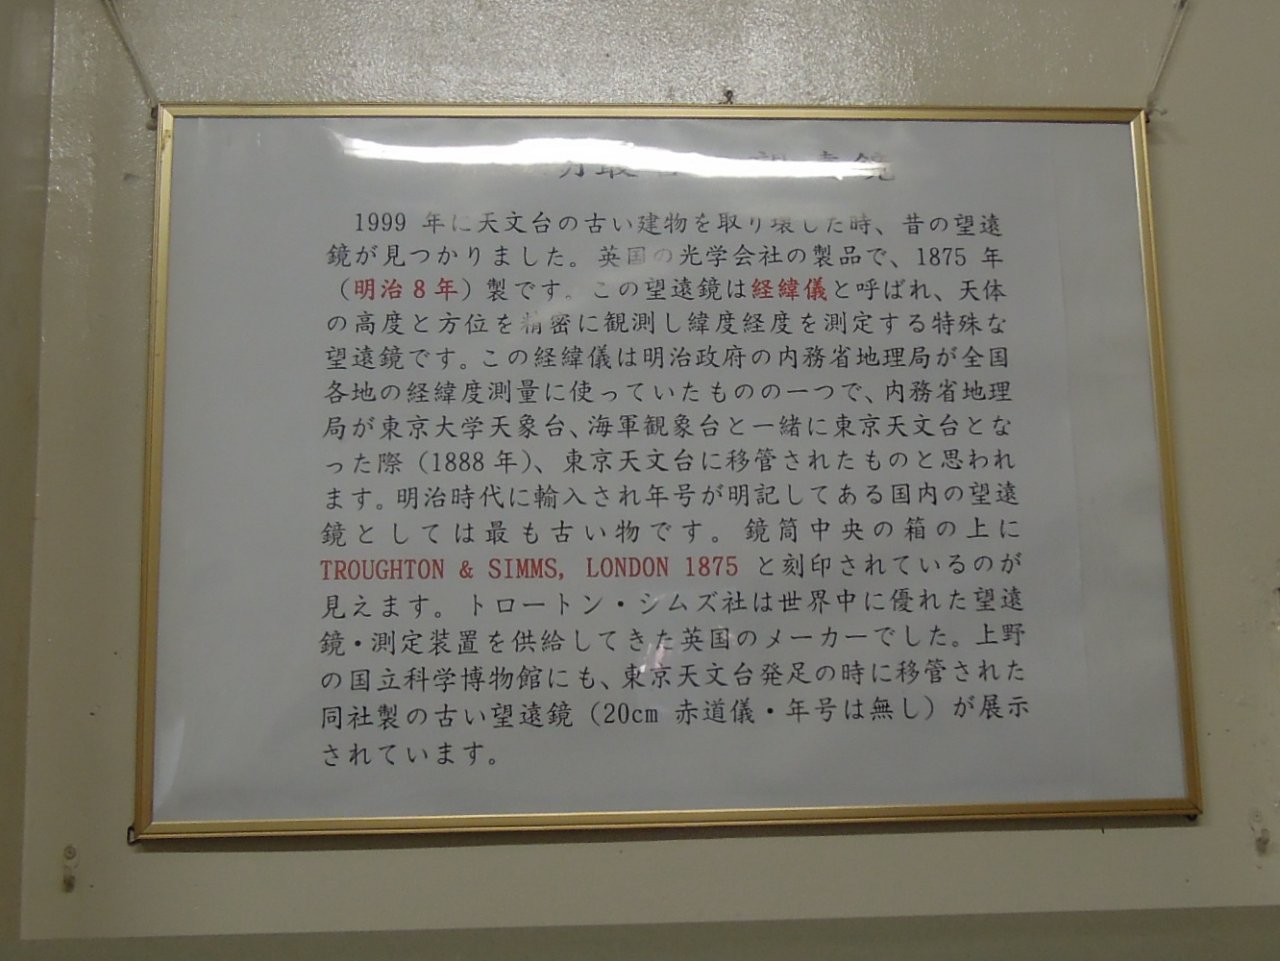 望遠鏡
1999 年に天文台の古い建物を取り壊した時、昔の望遠
鏡が見つかりました。英国の光学会社の製品で、1875 年
（明治８年）製です。この望遠鏡は経緯儀と呼ばれ、天体
の高度と方位を精密に観測し緯度経度を測定する特殊な
望遠鏡です。この経緯儀は明治政府の内務省地理局が全国
各地の経緯度測量に使っていたものの一つで、内務省地理
局が東京大学天象台、海軍観象台と一緒に東京天文台とな
った際（1888 年）、東京天文台に移管されたものと思われ
ます。明治時代に輸入され年号が明記してある国内の望遠
鏡としては最も古い物です。鏡筒中央の箱の上に
TROUGHTON & SIMMS, LONDON 1875 と刻印されているのが
見えます。トロートン・シムズ社は世界中に優れた望遠
鏡・測定装置を供給してきた英国のメーカーでした。上野
の国立科学博物館にも、東京天文台発足の時に移管された
同社製の古い望遠鏡（20cm 赤道儀・年号は無し）が展示
されています。